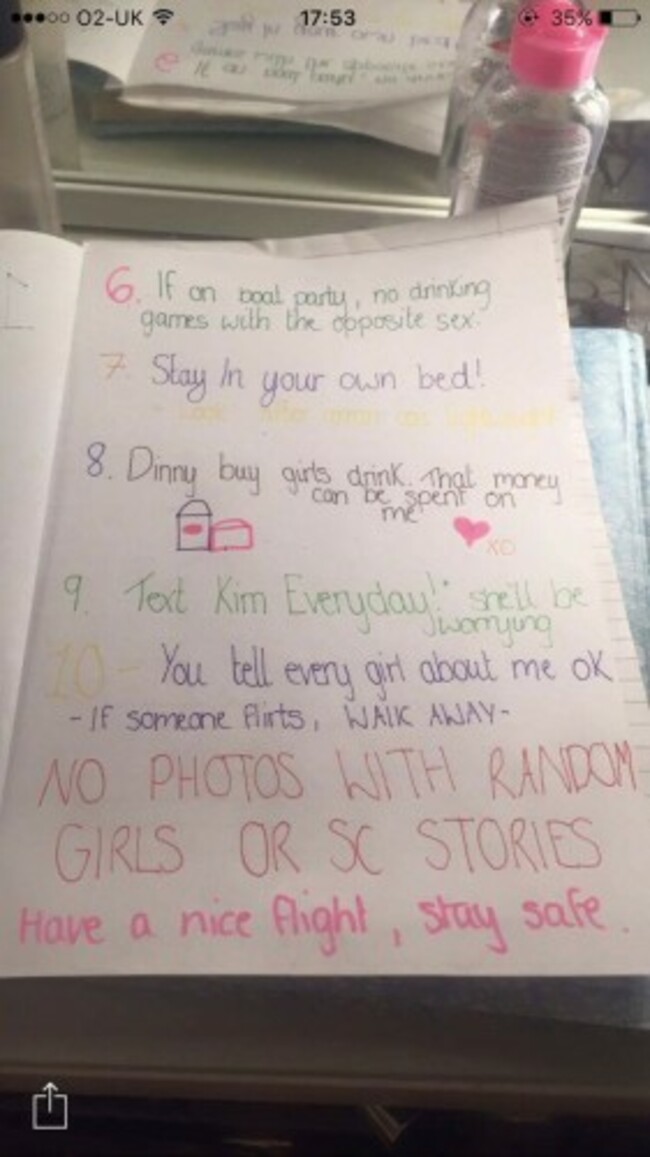 O2-UK 17:53 35%
6. If on boat party, no drinking
games with the opposite sex.
7. Stay In your own bed!
8. Dinny buy girls drink. That money
can be spent on
me
XO
9. Text Kim Everyday! she'll be
worrying
10 - You tell every girl about me OK
- If someone flirts, WALK AWAY-
NO PHOTOS WITH RANDOM
GIRLS OR SC STORIES
Have a nice flight, stay safe.